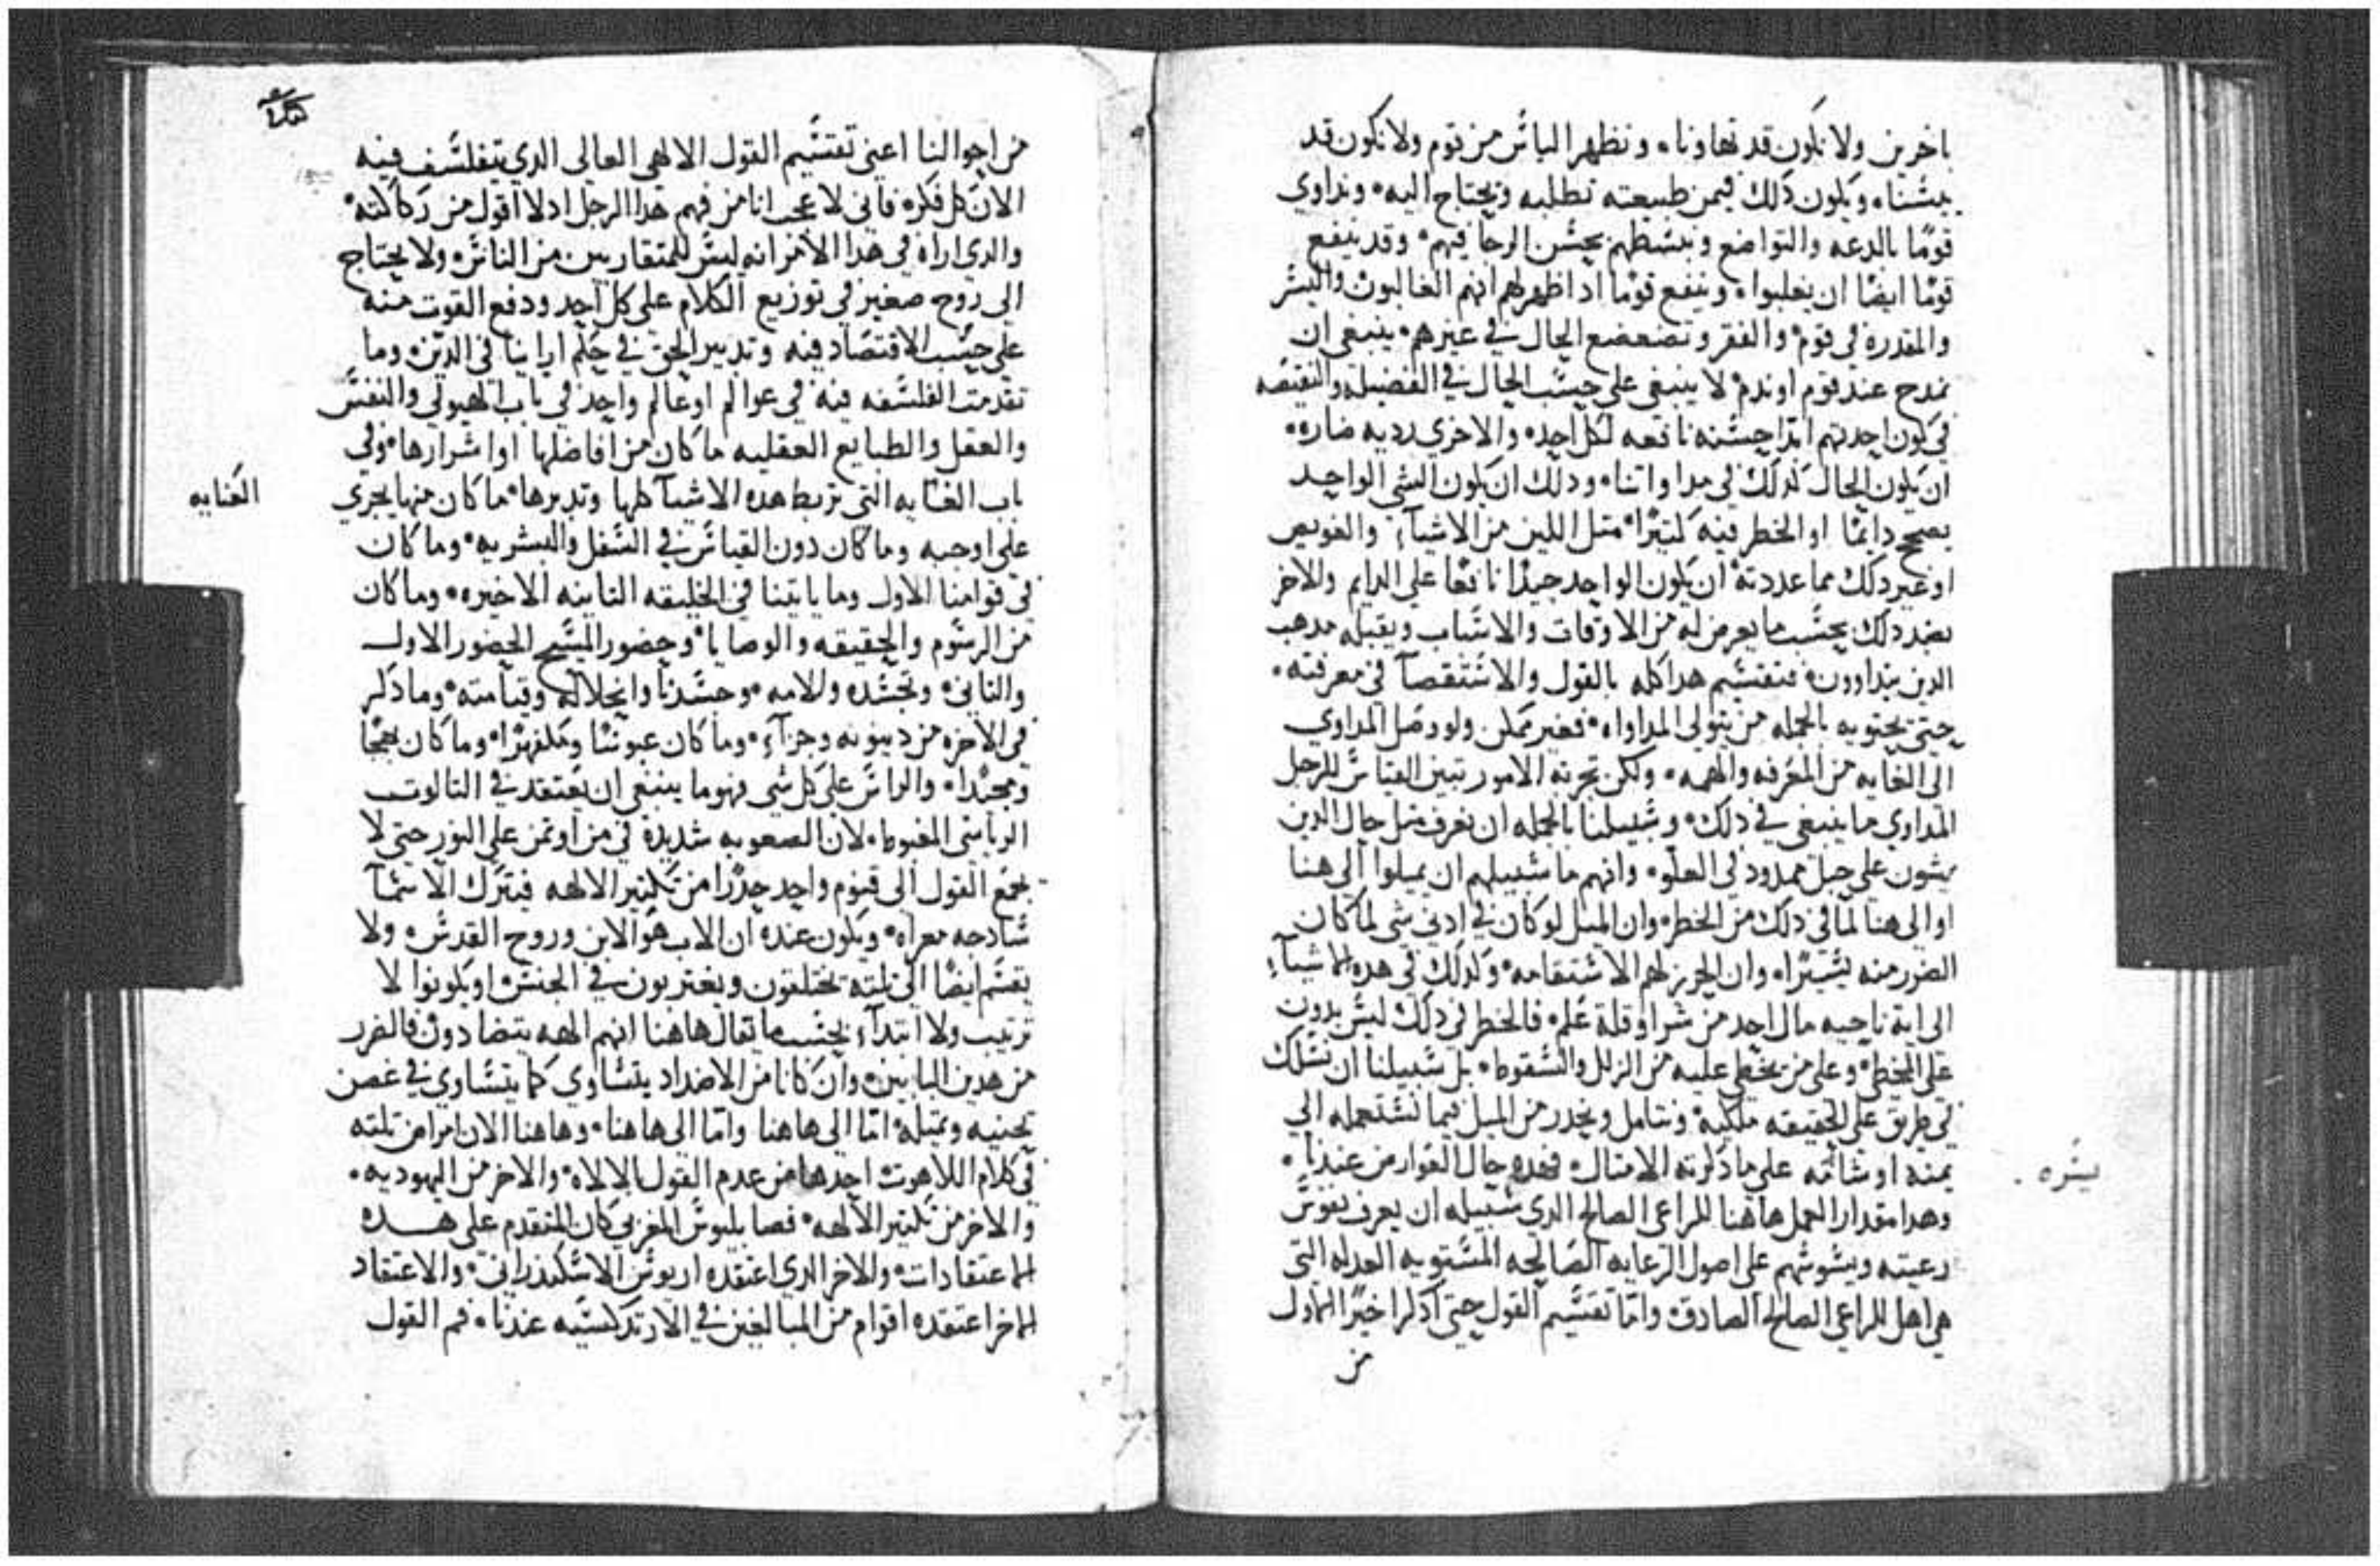 باخرين ولا نكون قد تهاونا٠ ونظهر الباس من قوم ولا نكون قد
يىسنا٠ ويكون دلك فيمن طبيعته تطلبه وتحتاج اليه٠ ونداوي
قومًا بالدعه والتواضع وننشطهم بحسن الرجا فيهم٠ وقد ينفع
قومًا ايضًا ان يغلبوا٠ وينفع قومًا اد اظهر لهم انهم الغالبون واليسر
والمقدره في قوم٠ والفقر وتضعضع الحال في غيرهم٠ ينبغي ان
نمدح عند قوم او ندم٠ لا ينبغي على حسب الحال في الفضيله والنقيصه
في كون احدتهم ابدًا حسنه نافعه لكل احد٠ والاخري رديه ضاره٠
ان يكون الحال كدلك في مداواتنا٠ ودلك ان يكون الشي الواحد
يصح دايمًا او الخطر فيه كتيرًا٠ متل اللين من الاشيآء والغويص
او غير دلك مما عددته٠ ان يكون الواحد جيدًا نافعًا على الدايم والاخر
بضد دلك بحسب ما يعرض له من الاوقات والاسباب ويقبله مدهب
الدين يتداوون٠ فتقسيم هدا كله بالقول والاستقصآ في معرفته٠
حتى يحتويه بالجمله من يتولى المداواه٠ فغير ممكن ولو وصل المداوي
الى الغايه من المعرفه والفهمه٠ ولكن تجربة الامور تبين القياس للرجل
المداوي ما ينبغي في دلك٠ وسبيلنا بالجمله ان نعرف متل حال الدين
يمشون على حبل ممدود في العلو٠ وانهم ما سبيلهم ان يميلوا الى هنا
او الى هنا لما في دلك من الخطر٠ وان الميل لو كان في ادنى شي لما كان
الضرر منه يسيرًا٠ وان الحرز لهم الاستقامه٠ وكدلك في هده الاشيآء
الى اية ناحيه مال احد من شر او قلة علم٠ فالخطر في دلك ليس بدون
على المخطي٠ وعلى من يخطي عليه من الزلل والسقوط٠ بل سبيلنا ان نسلك
في طريق على الحقيقه ملكيه٠ ونتامل ونحدر من الميل فيما نستعمله الى
يمنه او شامه على ما دكرته الامتال٠ فهده حال العوار من عندنا٠
وهدا مقدار العمل هاهنا للراعي الصالح الدي سبيله ان يعرف نفوس
رعيته ويسوسهم على اصول الرعايه الصالحه المستويه العدله التي
هي اهل للراعي الصالح الصادق٠ واما تقسيم القول حتى ادكر اخيرًا الاول
من
يسره
من احوالنا اعني تقسيم القول الالهي العالى الدي يتفلسف فيه
الان كل فكره فاني لاعجب انا من فهم هدا الرجل ادلا اقول من ركاكته٠
والدي اراه في هدا الامر انه ليس للمتقاربين من الناس٠ ولا يحتاج
الى روح صغير في توزيع الكلام على كل احد ودفع القوت منه
على حسب الاقتصاد فيه وتدبير الحق في حكم اراينا في الدين٠ وما
تقدمت الفلسفه فيه في عوالم او عالم واحد في باب الهيولى والنفس
والعقل والطبايع العقليه ما كان من افاضلها او اشرارها٠ وفي
باب العنايه التي تربط هده الاشيآ كلها وتدبرها٠ ما كان منها يجري
على اوجبه وما كان دون القياس في السفل والبشريه٠ وما كان
في قوامنا الاول وما ياتينا في الخليقه التانيه الاخيره٠ وما كان
من الرسوم والحقيقه والوصايا٠ وحضور المسيح الحضور الاول
والتاني٠ وتجسده والامه٠ وجسدنا وانحلاله وقيامته٠ وما دكر
في الاخره من دينونه وجزآء٠ وما كان عبوسًا ومكفهرًا٠ وما كان بهجًا
وممجدا٠ والراس على كل شي فهو ما ينبغي ان يعتقد في التالوت
الرياسي المغبوط٠ لان الصعوبه شديده في من اوتمن على النور حتى لا
يجمع القول الى قنوم واحد حدرًا من تكتير الالهه فيترك الاسمآ
سادجه معراه٠ ويكون عنده ان الاب هو الابن وروح القدس٠ ولا
يقسم ايضًا الى تلته تختلقون ويغتربون في الجنس٠ او يكونوا لا
ترتيب ولا ابتدآء بحسب ما يقال هاهنا انهم الهه يتضادون٠ فالضرر
من هدين البابين٠ وان كانا من الاضداد يتساوي كما يتساوي في غصن
تحنيه وتميله٠ اما الى هاهنا واما الى هاهنا٠ وهاهنا الان امراض تلته
في كلام اللاهوت احدها من عدم القول بالالاه٠ والاخر من اليهوديه٠
والاخر من تكتير الالهه٠ فصابليوس المغربي كان المتقدم على هده
الاعتقادات٠ والاخر الدي اعتقده اريوس الاسكندراني٠ والاعتقاد
الاخر اعتقده اقوام من المبالغين في الارتدكسيه عندنا٠ فم القول
العنايه